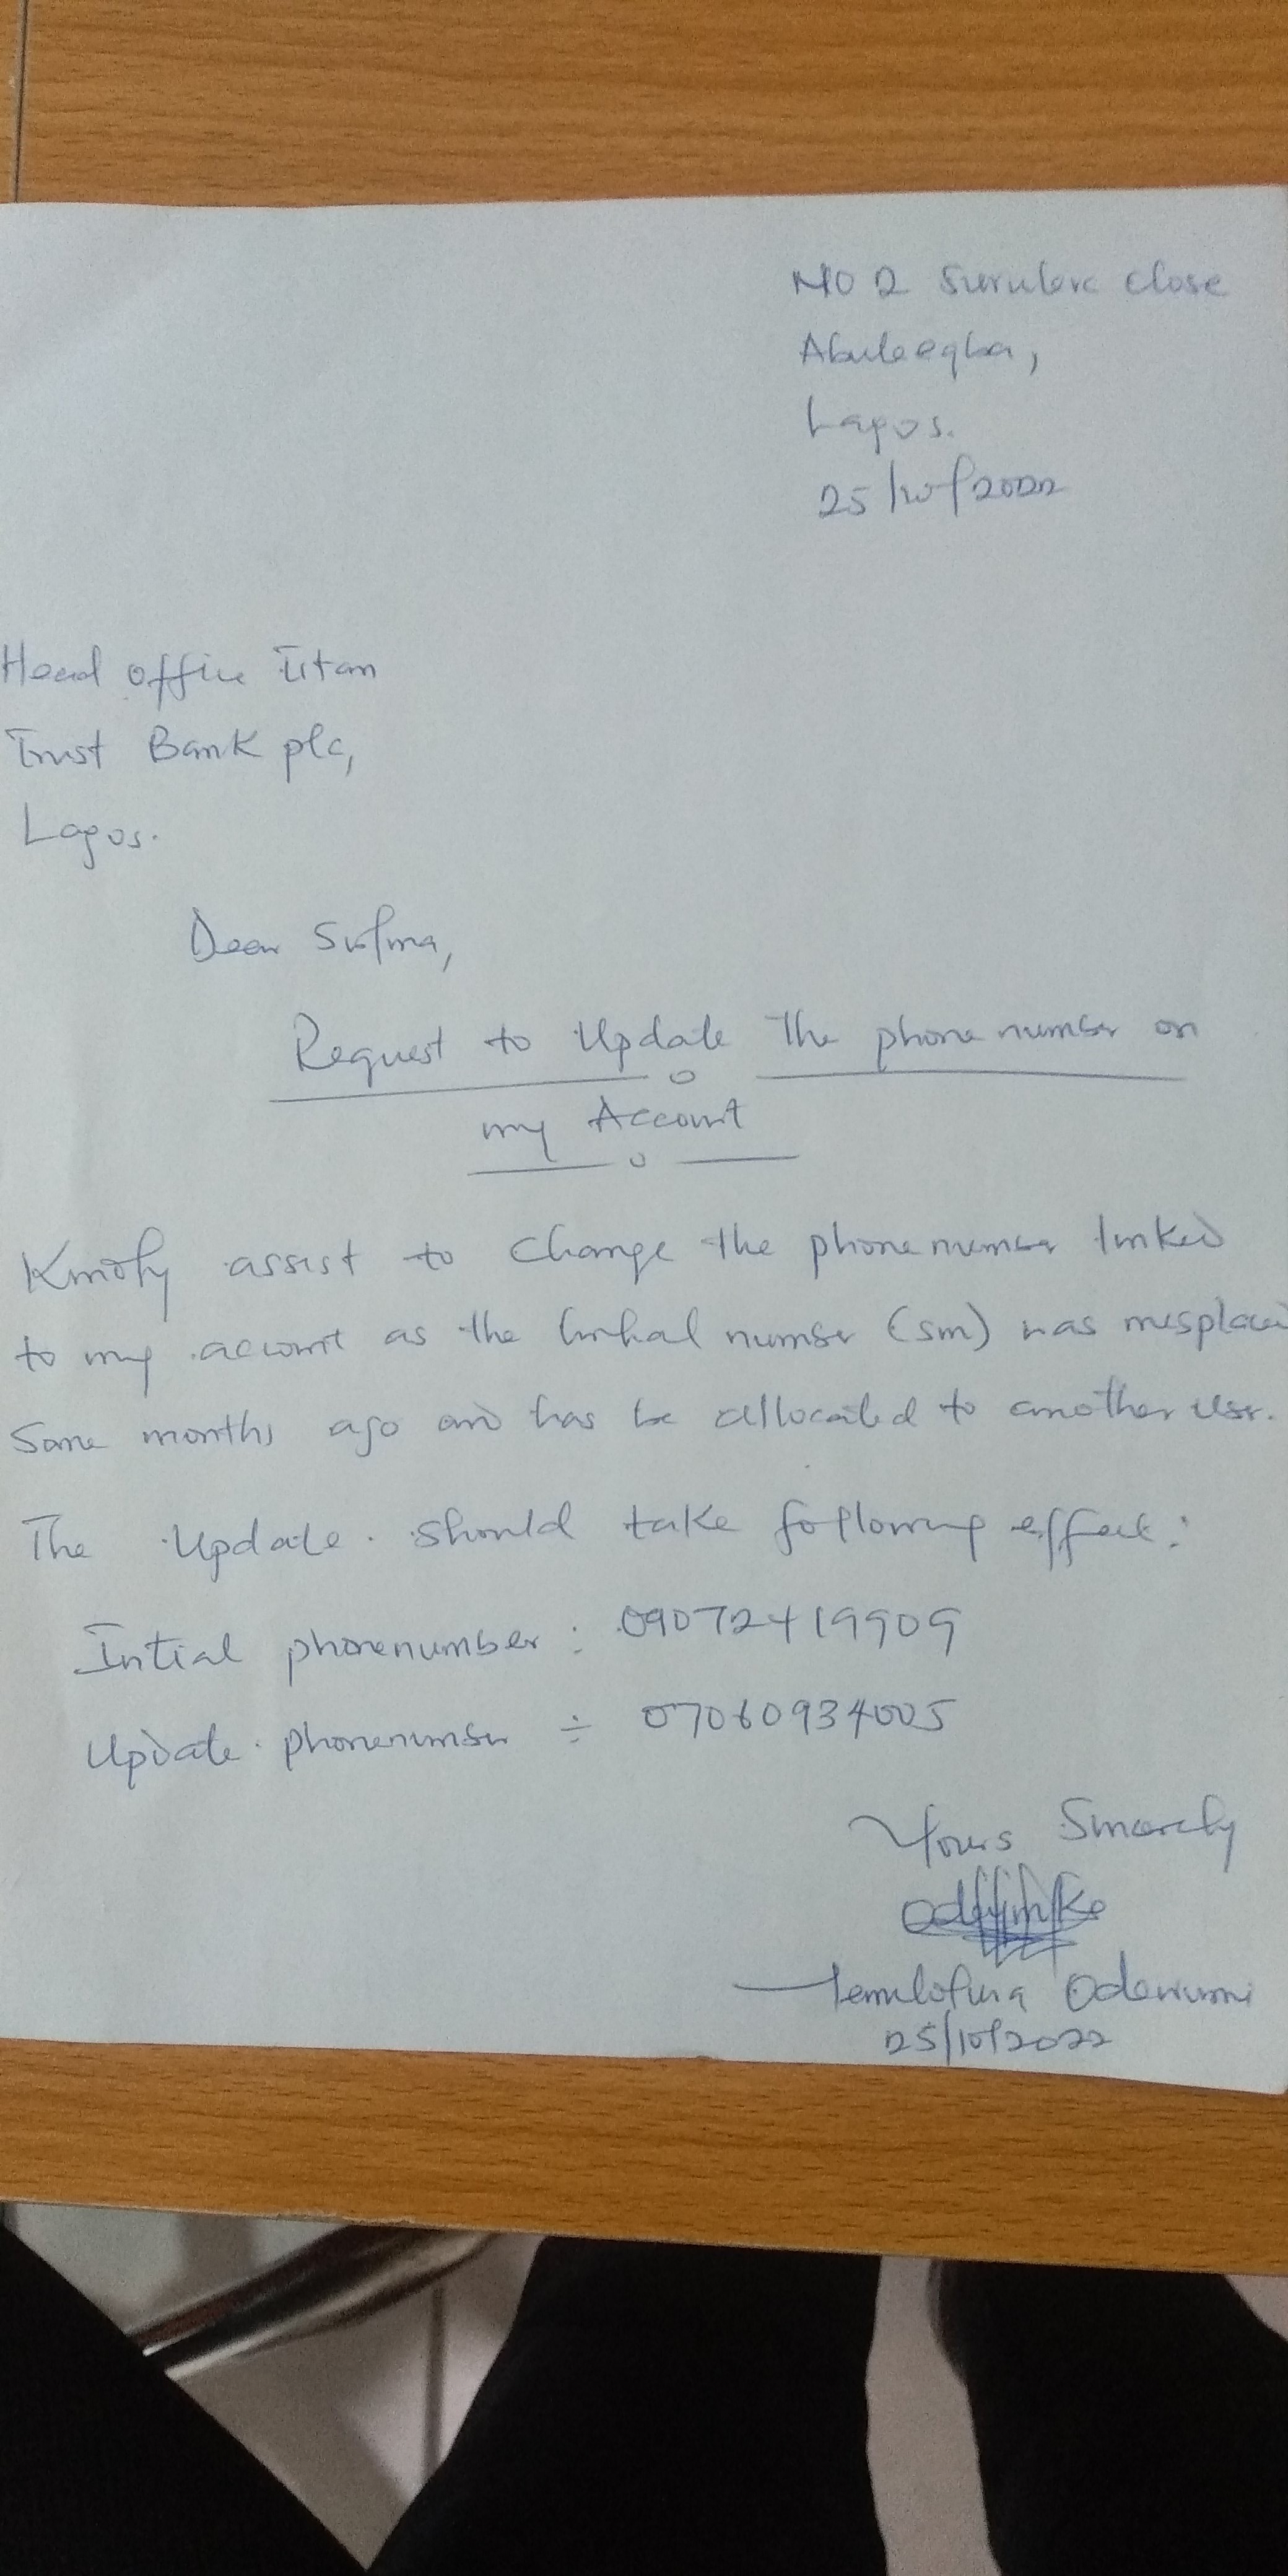 NO 2 Surulere close
Abuleegba,
Lagos.
25/10/2022
Head office Titan
Trust Bank plc,
Lagos.
Dear Sir/ma,
Request to Update The phone number on
my Account
Kindly assist to change the phone number linked
to my account as the Initial number (sim) was misplaced
Some months ago and has be allocated to another user.
The Update should take following effect:
Intial phonenumber: 09072419909
Update phonenumber ÷ 07060934005
Yours Sincerely
Temilofura Oderinmi
25/10/2022